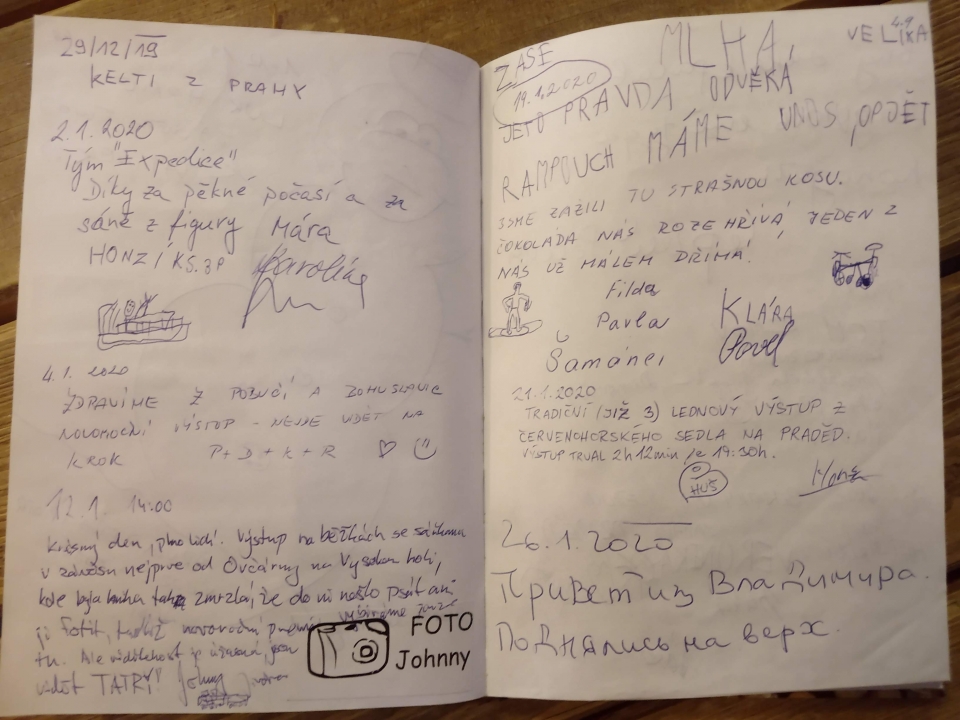 29/12/19
KELTI Z PRAHY
2.1.2020
Tým "Expedice"
Díky za pěkné počasí a za
sáně z figury Mára
HONZÍK Karolína
4.1. 2020
ZDRAVÍME Z A BOHUSLAVIC
NOVOROČNÍ VÝSTUP - NENÍ VIDĚT NA
KROK P + D + K + R
12.1. 14:00
Krásný den, plno lidí. Výstup na běžkách se
v závěsu nejprve od Ovčárny na Vysokou holi,
kde byla kniha tak zmrzlá, že do ní nešlo psát ani
ji fotit, novoroční
tu. Ale viditelnost je úžasná, jsou
vidět TATRY!
FOTO
Johnny
4.9
ZASE MLHA, VELIKÁ
19.1.2020
JETO PRAVDA ODVĚKÁ
RAMPOUCH MÁME U NOS, OPJĚT
JSME ZAŽILI TU STRAŠNOU KOSU.
ČOKOLÁDA NÁS ROZEHŘÍVÁ, JEDEN Z
NÁS UŽ MÁLEM DŘÍMÁ!
Filda
Pavla KLÁRA
Šamánei Pavel
21.1.2020
TRADIČNÍ (JIŽ 3) LEDNOVÝ VÝSTUP Z
ČERVENOHORSKÉHO SEDLA NA PRADĚD.
VÝSTUP TRVAL 2h 12min je 19:30h.
HUŠ
26.1.2020
Привет из Владимира.
Поднялись на верх.